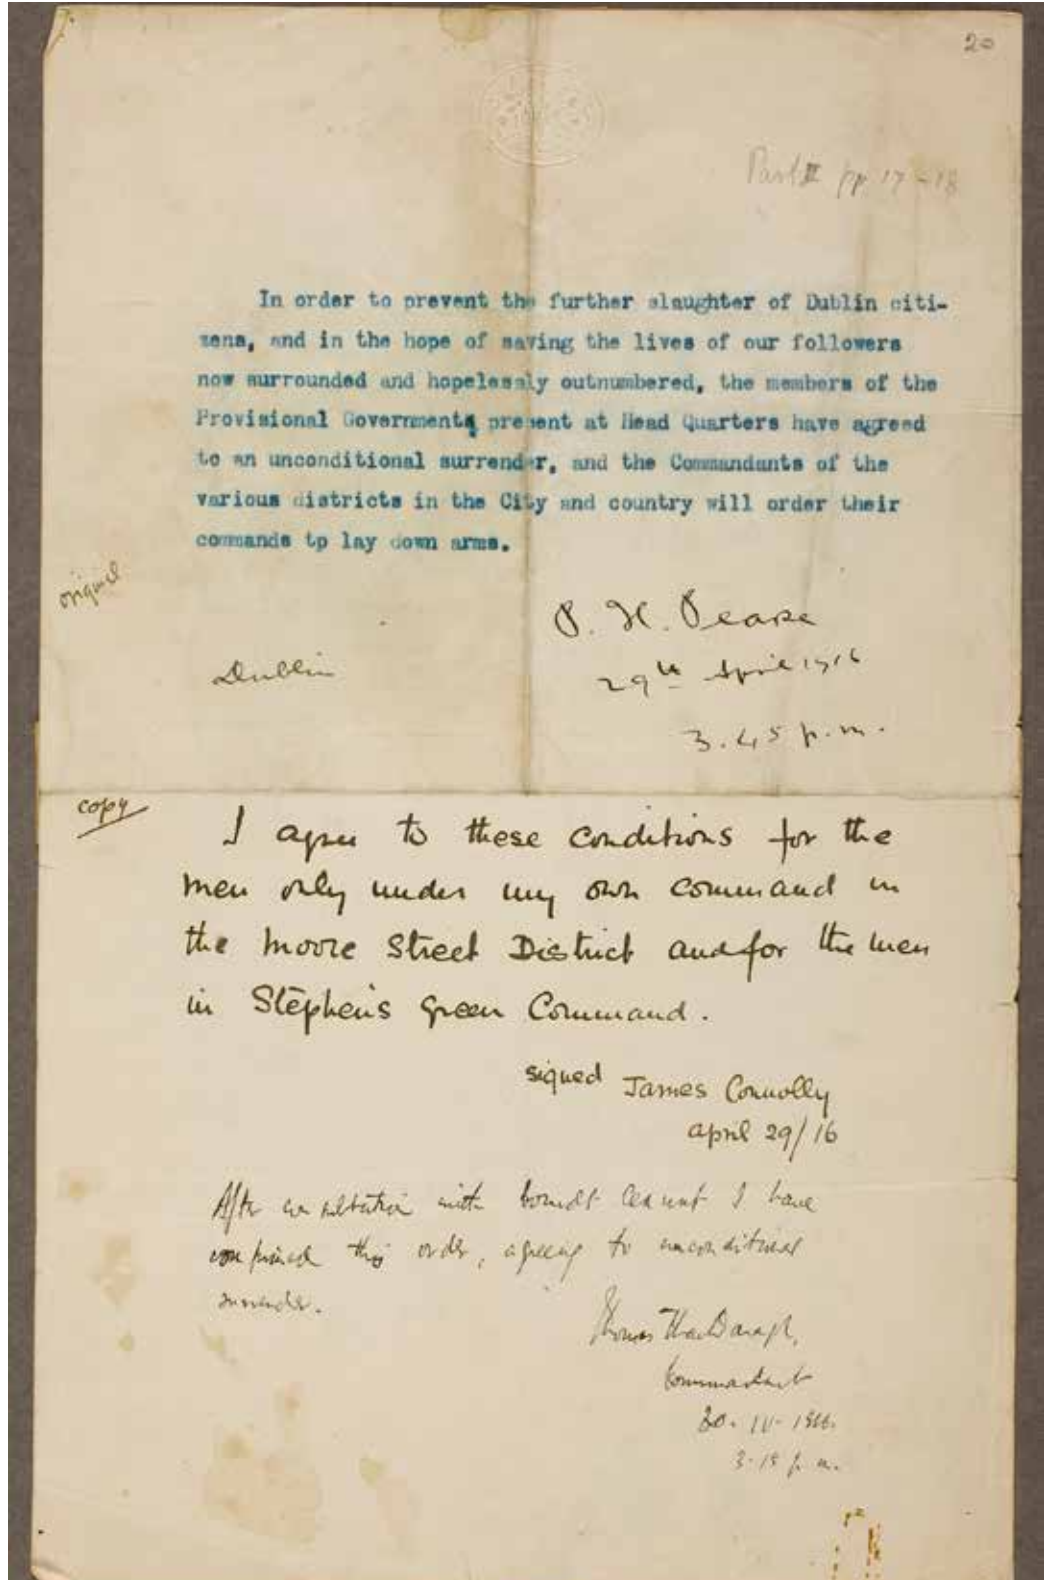 20
Part II pp 17-18
In order to prevent the further slaughter of Dublin citi-
zens, and in the hope of saving the lives of our followers
now surrounded and hopelessly outnumbered, the members of the
Provisional Government present at Head Quarters have agreed
to an unconditional surrender, and the Commandants of the
various districts in the City and country will order their
commands tp lay down arms.
original
P. H. Pearse
Dublin
29th April 1916
3.45 p.m.
copy
I agree to these conditions for the
men only under my own command in
the Moore Street District and for the men
in Stephen's Green Command.
signed James Connolly
April 29/16
After consultation with Comdt Ceannt I have
confirmed this order, agreeing to unconditional
surrender.
Thomas MacDonagh,
Commandant
30. IV. 1916.
3.15 p.m.